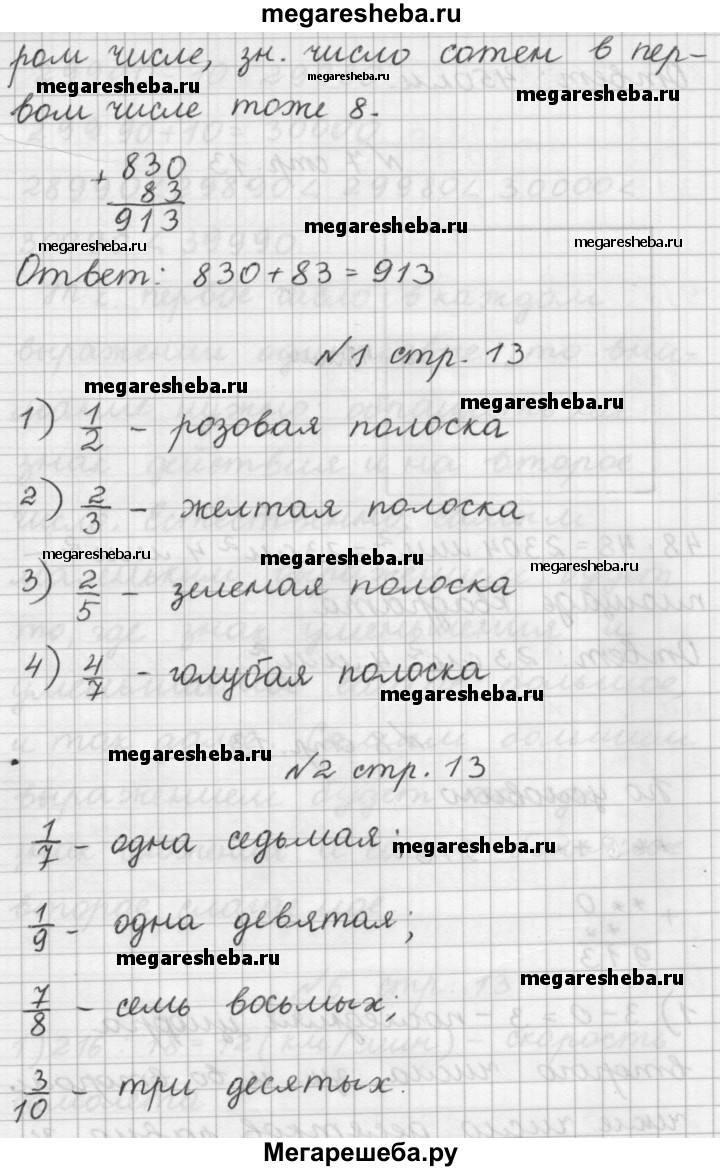 megaresheba.ru
ром числе, зн. число сотен в пер-
megaresheba.ru megaresheba.ru megaresheba.ru
вом числе тоже 8.
+ 830
83
913
megaresheba.ru
megaresheba.ru megaresheba.ru
Ответ: 830+83=913
№1 стр. 13
megaresheba.ru megaresheba.ru
1) 1/2 - розовая полоска
2) 2/3 - желтая полоска
megaresheba.ru megaresheba.ru megaresheba.ru
3) 2/5 - зеленая полоска
4) 4/7 - голубая полоска
megaresheba.ru
megaresheba.ru
№2 стр. 13
1/7 - одна седьмая;
megaresheba.ru
1/9 - одна девятая;
megaresheba.ru megaresheba.ru
7/8 - семь восьмых;
3/10 - три десятых.
Мегарешеба.ру